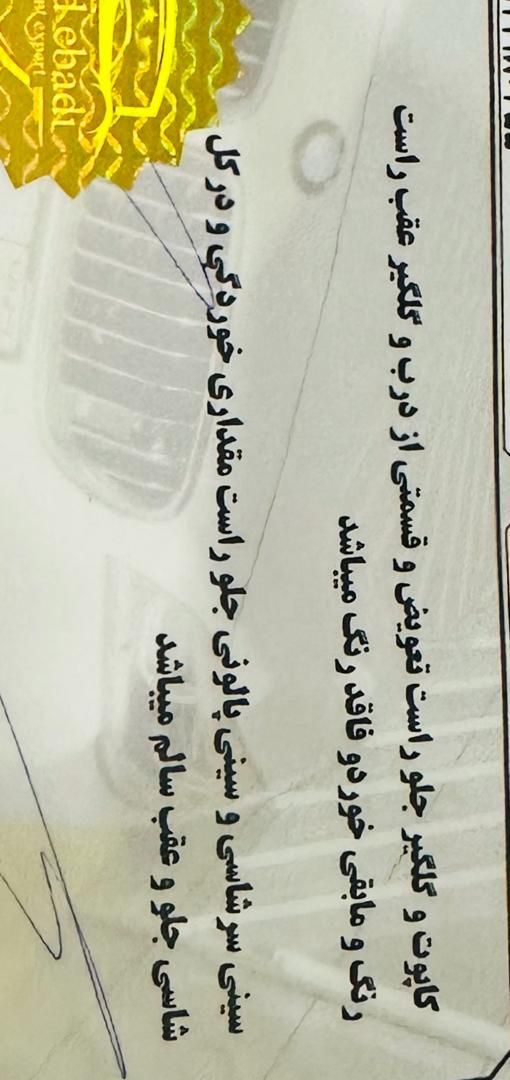 کاپوت و گلگیر جلو راست تعویض و قسمتی از درب و گلگیر عقب راست
رنگ و مابقی خودرو فاقد رنگ میباشد
سینی سرشاسی و سینی پالونی جلو راست مقداری خوردگی و در کل
شاسی جلو و عقب سالم میباشد
Kebadi
expert